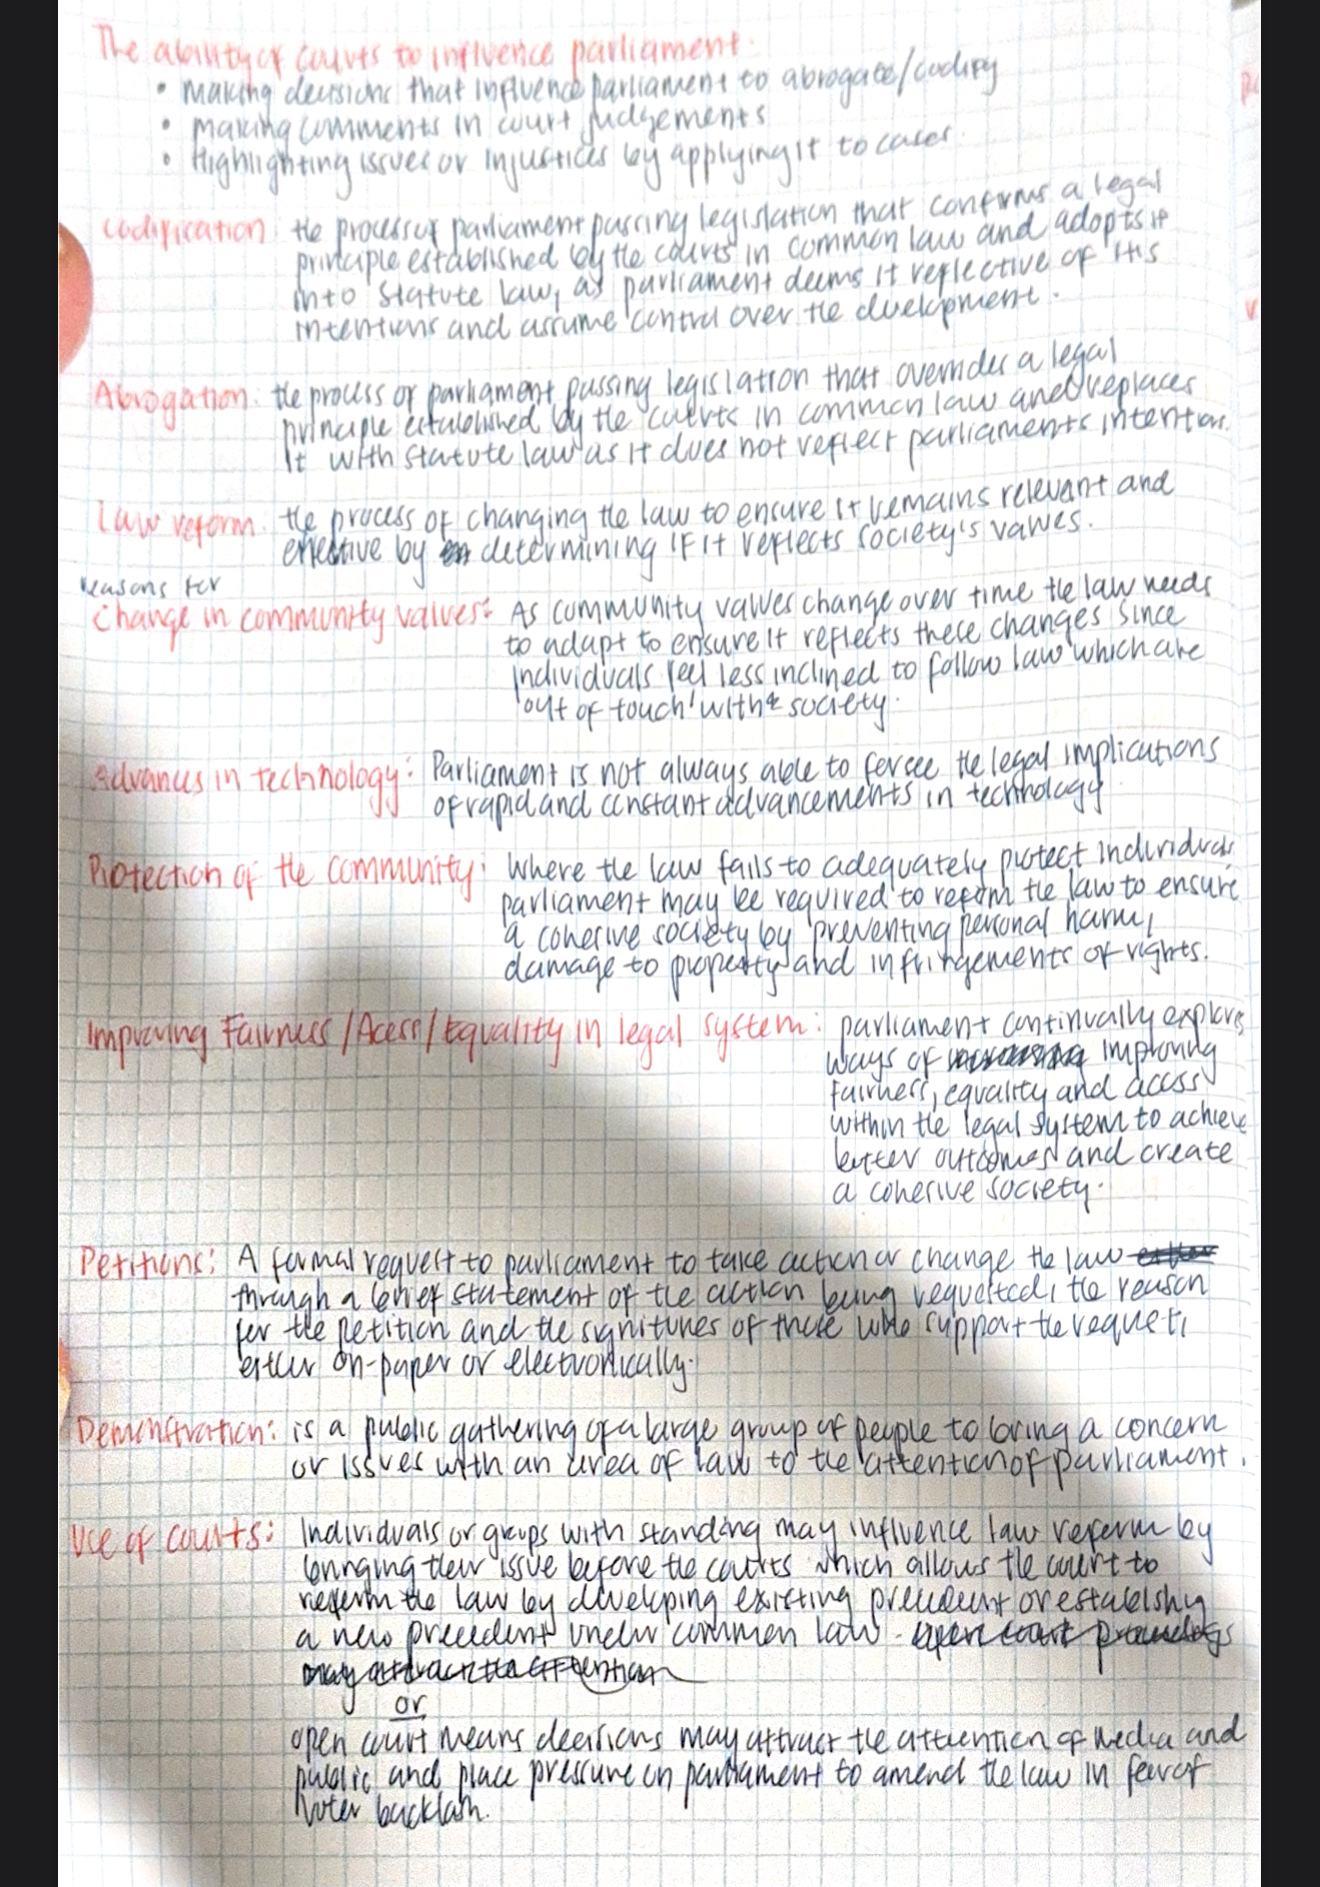 The ability of courts to influence parliament:
• Making decisions that influence parliament to abrogate/codify
• Making comments in court judgements
• Highlighting issues or injustices by applying it to cases.
Codification: the process of parliament passing legislation that confirms a legal
principle established by the courts in common law and adopts it
into statute law, as parliament deems it reflective of its
intentions and assume control over the development.
Abrogation: the process of parliament passing legislation that overrides a legal
principle established by the courts in common law and replaces
it with statute law as it does not reflect parliaments intention.
Law reform: the process of changing the law to ensure it remains relevant and
effective by determining if it reflects society's values.
reasons for
Change in community values: As community values change over time the law needs
to adapt to ensure it reflects these changes since
individuals feel less inclined to follow law which are
'out of touch' with society.
Advances in technology: Parliament is not always able to forsee the legal implications
of rapid and constant advancements in technology
Protection of the community: Where the law fails to adequately protect individuals,
parliament may be required to reform the law to ensure
a cohesive society by preventing personal harm,
damage to property and infringements of rights.
Improving Fairness/Acess/Equality in legal system: parliament continually explores
ways of improving
fairness, equality and access
within the legal system to achieve
better outcomes and create
a cohesive society.
Petitions: A formal request to parliament to take action or change the law
through a brief statement of the action being requested, the reason
for the petition and the signitures of those who support the request,
either on-paper or electronically.
Demonstration: is a public gathering of a large group of people to bring a concern
or issues with an area of law to the attention of parliament.
Use of courts: Individuals or groups with standing may influence law reform by
bringing their issue before the courts which allows the court to
reform the law by developing existing precedent or establishing
a new precedent under common law. open court proceedings
may attract the attention
or
open court means decisions may attract the attention of media and
public and place pressure on parliament to amend the law in fear of
voter backlash.